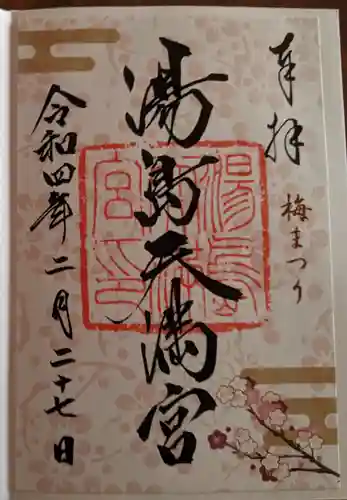 奉拝
梅まつり
湯島天満宮
湯島天神宮印
令和四年二月二十七日